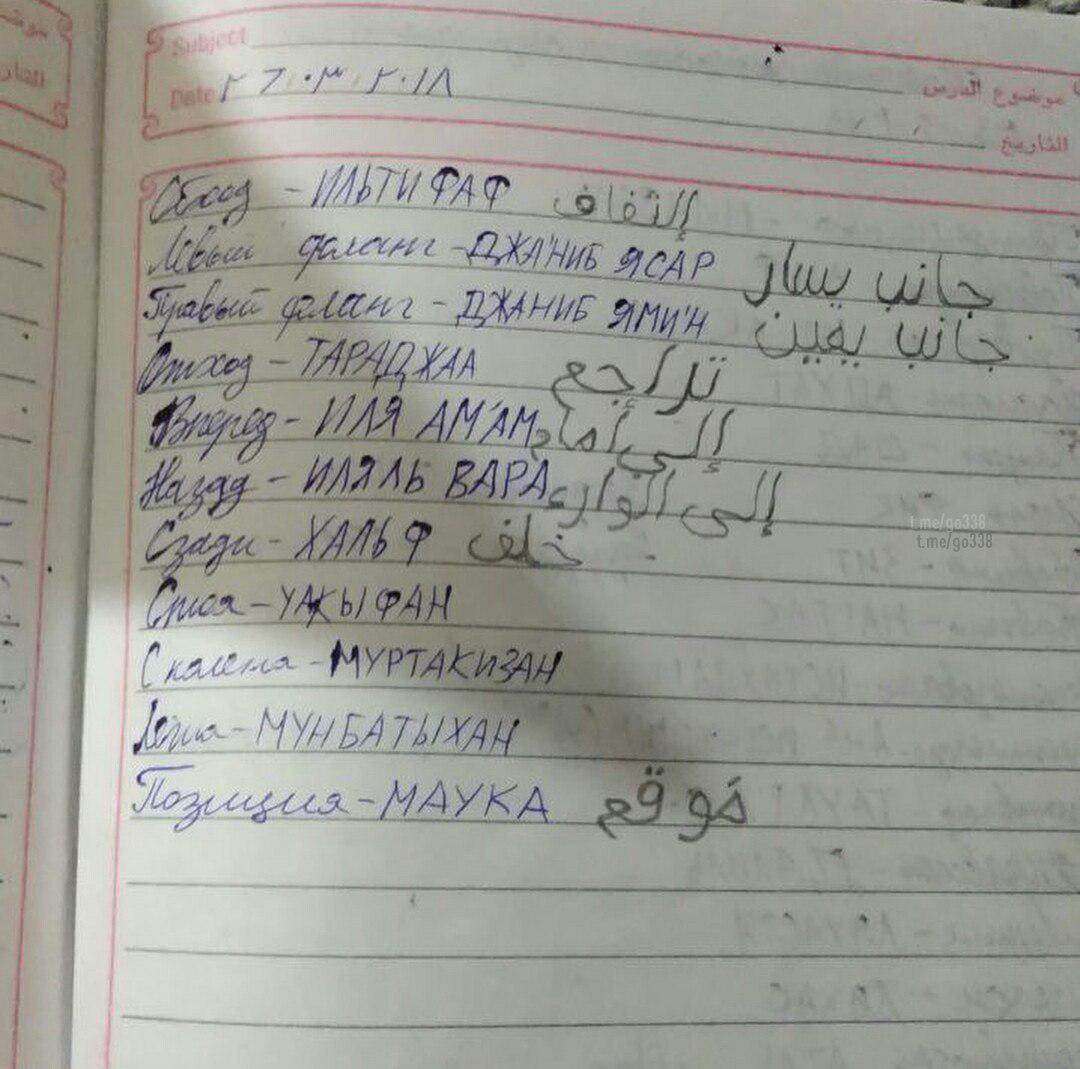 Subject
موضوع الدرس
Date ٢٦.٠٣.٢٠١٨
التاريخ
Обход - ИЛЬТИФАФ إلتفاف
Левый фланг - ДЖА'НИБ ЯСАР جانب يسار
Правый фланг - ДЖАНИБ ЯМИ'Н جانب يمين
Отход - ТАРАДЖАА تراجع
Вперед - ИЛЯ АМ'АМ إلى أمام
Назад - ИЛЯЛЬ ВАРА إلى الواراء
Сзади - ХАЛЬФ خلف
t.me/go338
t.me/go338
Стоя - УАКЫФАН
С колена - МУРТАКИЗАН
Лёжа - МУНБАТЫХАН
Позиция - МАУКА موقع